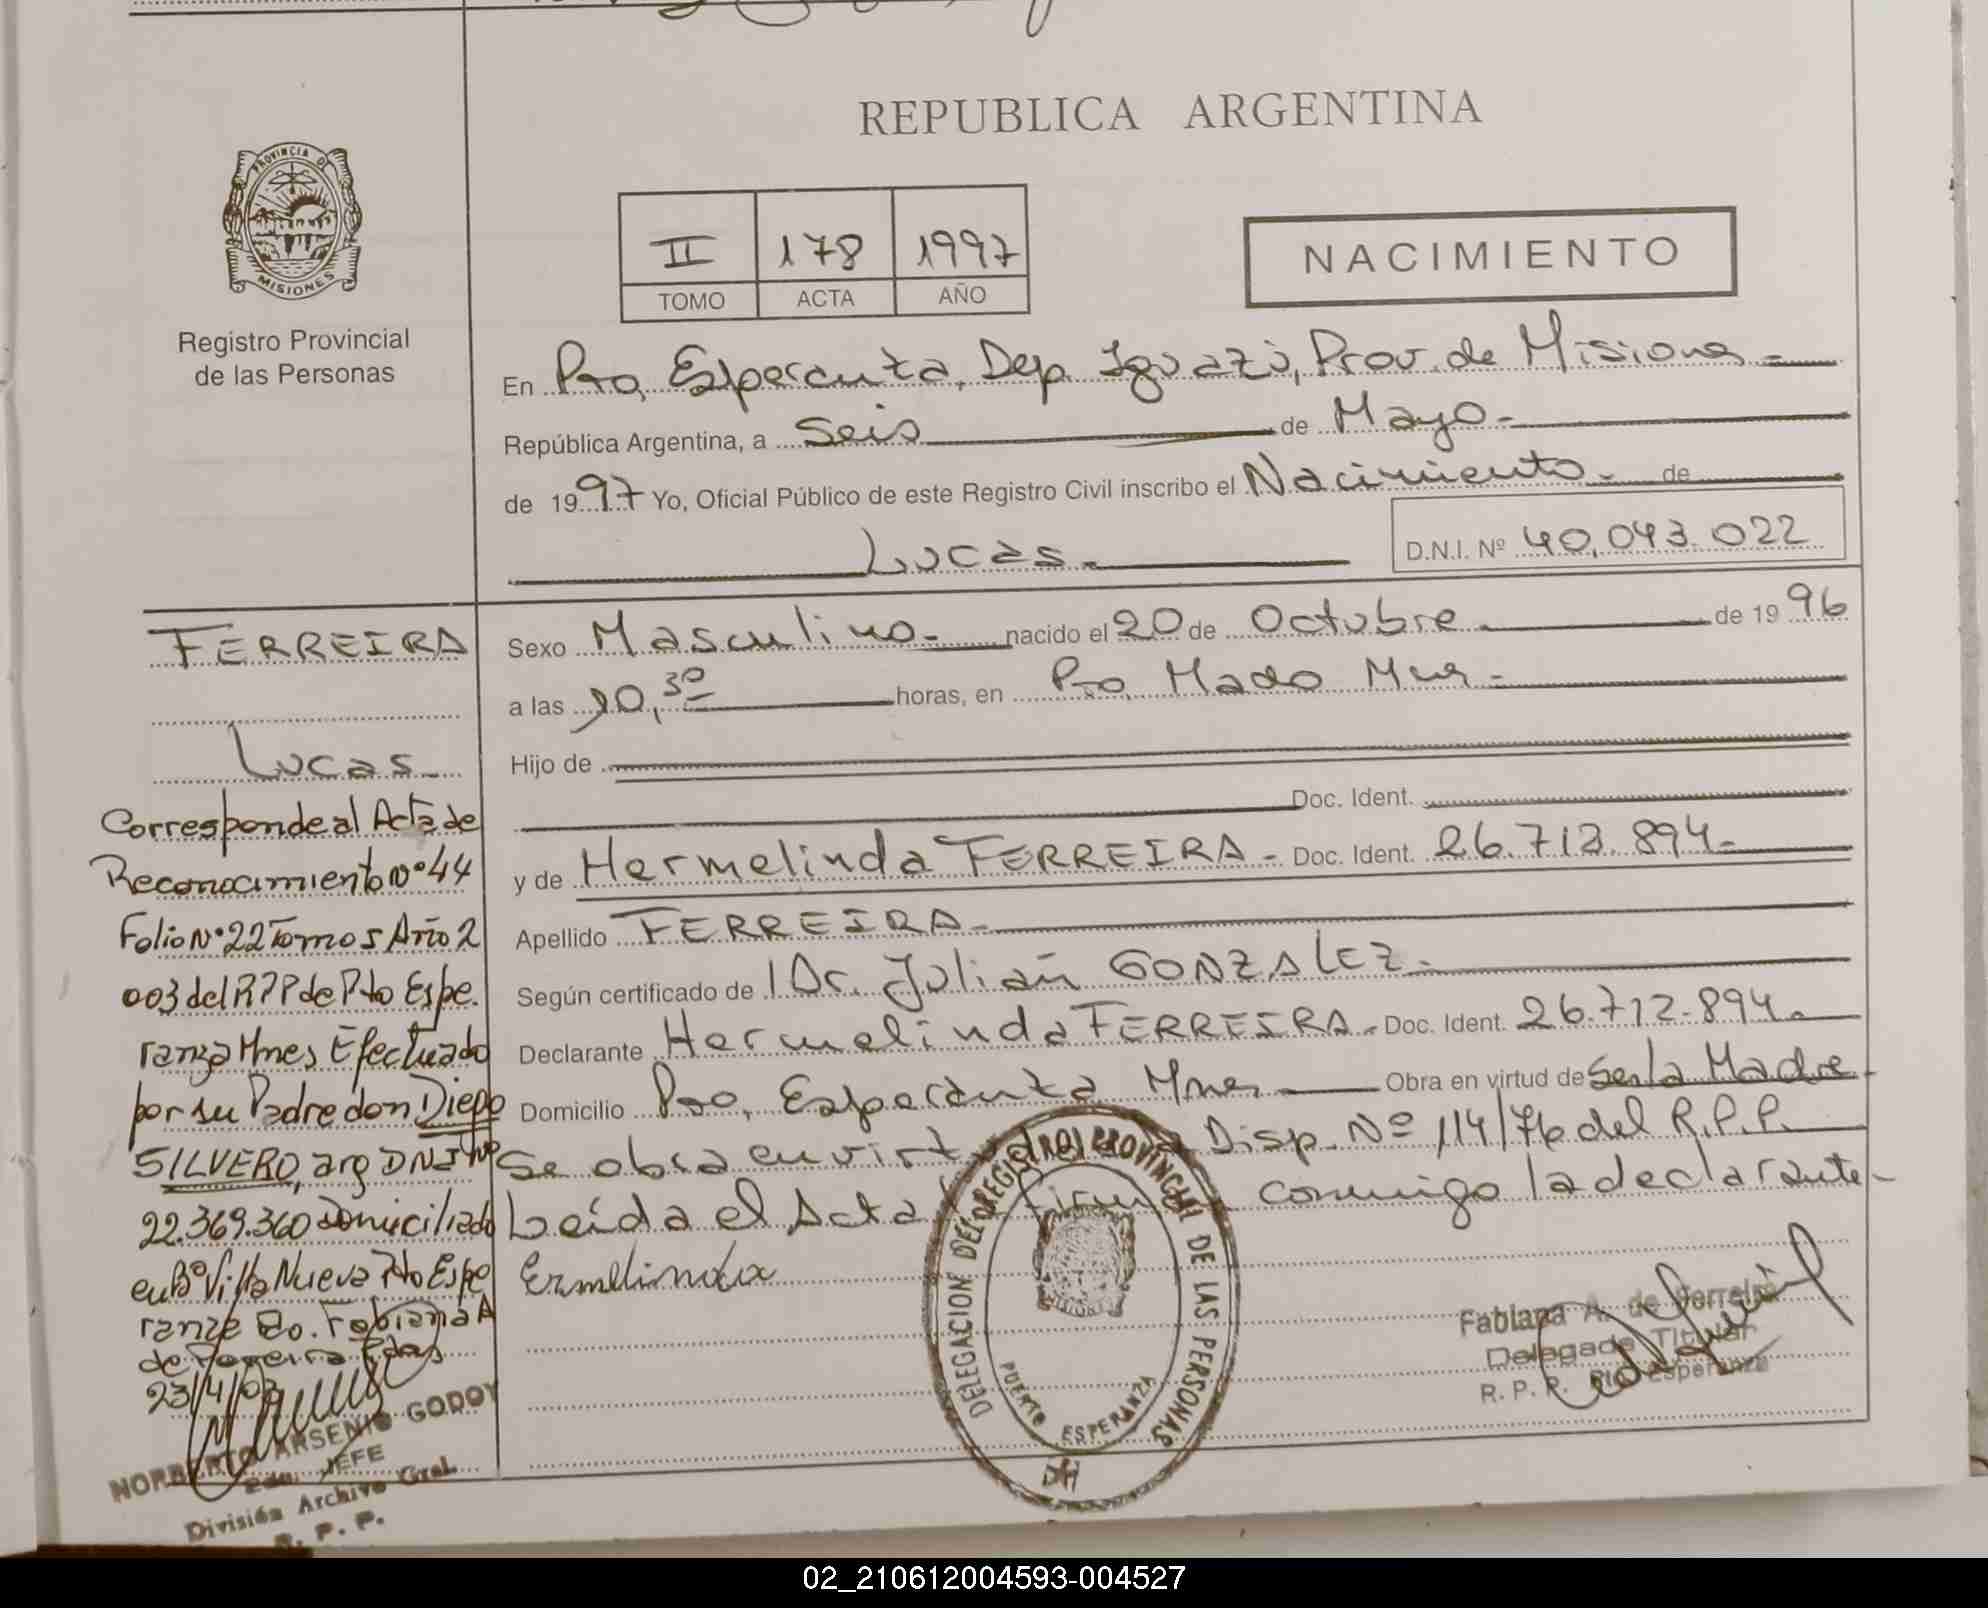 REPUBLICA ARGENTINA
PROVINCIA DE
MISIONES
Registro Provincial
de las Personas
II 178 1997
TOMO ACTA AÑO
NACIMIENTO
En Pto, Esperanza, Dep. Iguazù, Prov. de Misiones -
República Argentina, a Seis de Mayo -
de 1997 Yo, Oficial Público de este Registro Civil inscribo el Nacimiento - de
Lucas - D.N.I. Nº 40,043.022
FERREIRA
Lucas
Sexo Masculino - nacido el 20 de Octubre - de 1996
a las 10,30 horas, en Pto Mado Mnes -
Hijo de
Doc. Ident.
y de Hermelinda FERREIRA - Doc. Ident. 26.712.894 -
Apellido FERREIRA -
Según certificado de Dr. Julian GONZALEZ -
Declarante Hermelinda FERREIRA - Doc. Ident. 26.712.894 -
Domicilio Pto, Esperanza Mnes Obra en virtud de Ser la Madre -
Se obra en virtud Disp. Nº 114/76 del R.P.P.
Leída el Acta firma conmigo la declarante -
Ermelinda
Corresponde al Acta de
Reconocimiento Nº 44
Folio Nº 22 Tomo 5 Año 2
003 del RPP de Pto Espe.
ranza Mnes Efectuado
por su Padre don Diego
SILVERO, arg DNI Nº
22.369.360 domiciliado
en Bº Villa Nueva Pto Espe
ranza Fdo. Fabiana A
de Ferreira
23/4/03
NORBERTO ARSENIO GODOY
JEFE
División Archivo Gral.
R. P. P.
DELEGACION DEL REGISTRO PROVINCIAL DE LAS PERSONAS
PUERTO ESPERANZA
Fabiana A. de Ferreira
Delegada Titular
R. P. P. Pto. Esperanza
02_210612004593-004527